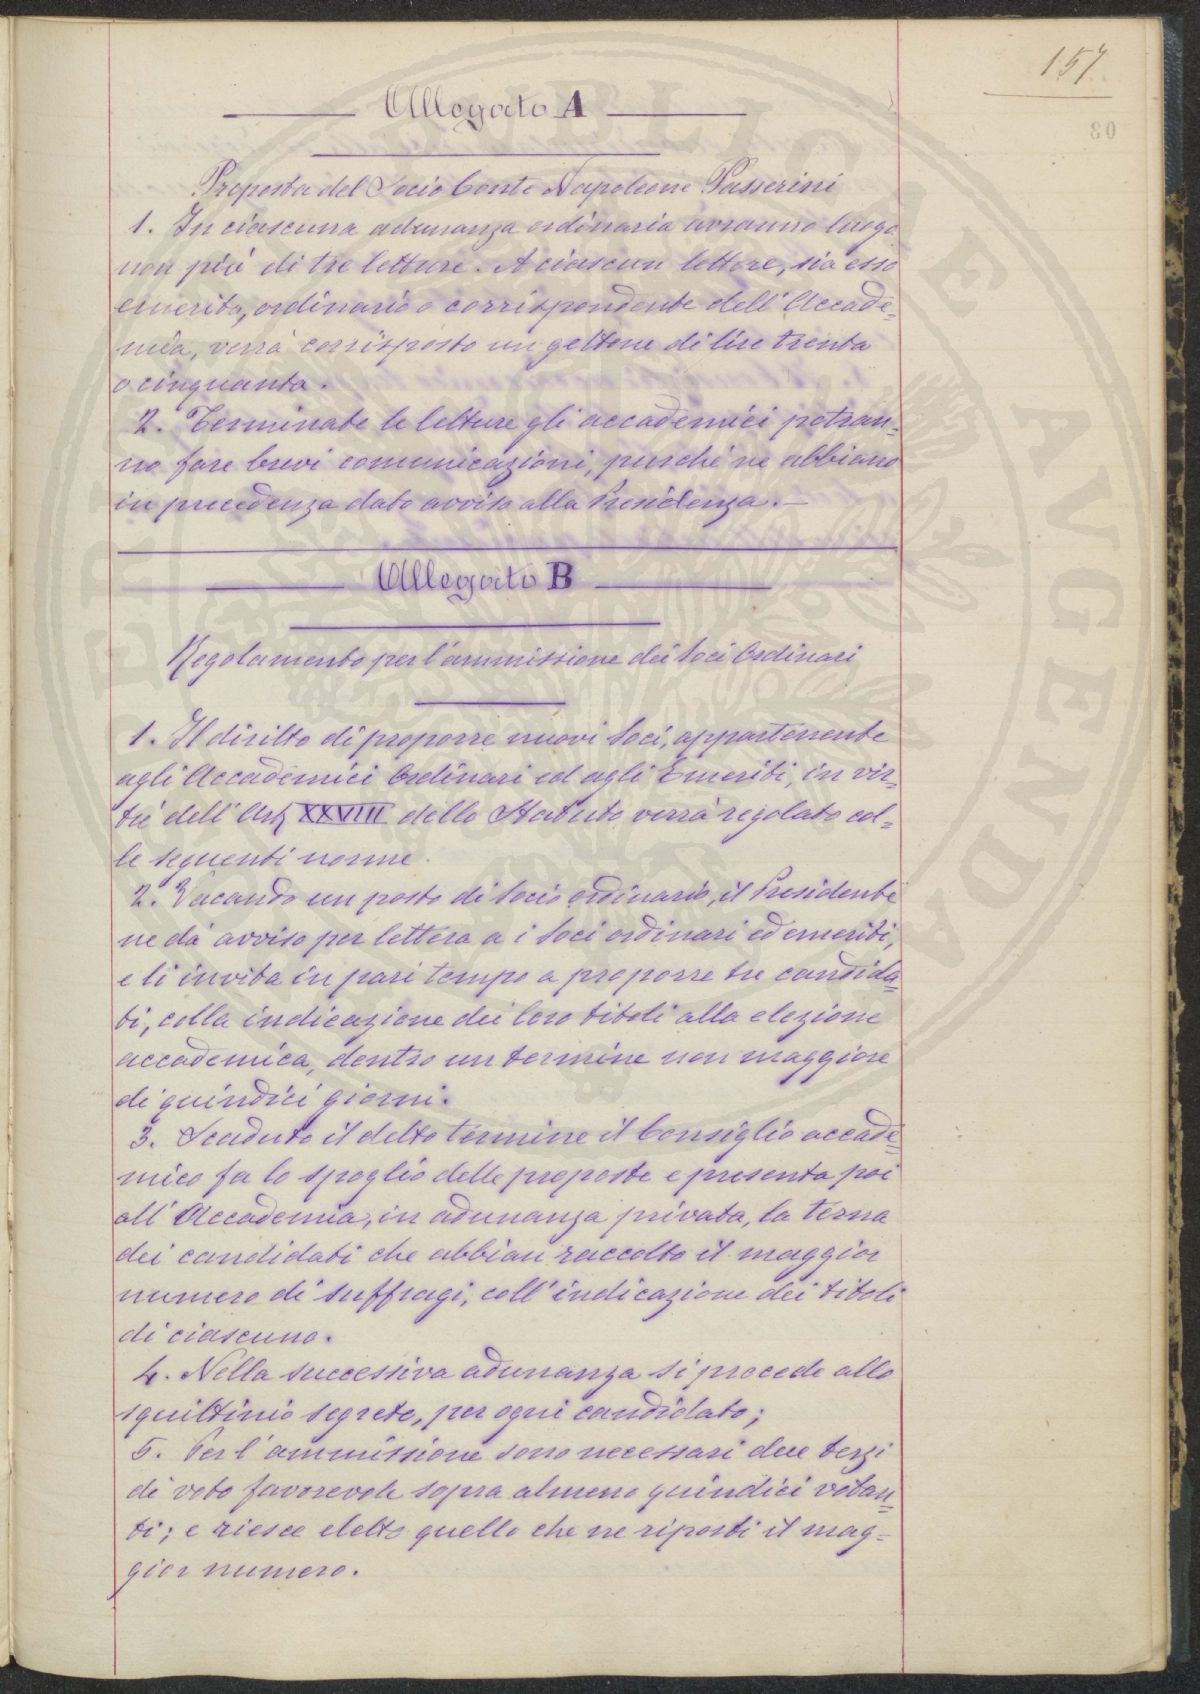 157
80
Allegato A
Proposta del Socio Conte Napoleone Passerini
1. In ciascuna adunanza ordinaria avranno luogo
non più di tre letture. A ciascun lettore, sia esso
emerito, ordinario o corrispondente dell'Accade=
mia, verrà corrisposto un gettone di lire trenta
o cinquanta.
2. Terminate le letture gli accademici potran=
no fare brevi comunicazioni, purché ne abbiano
in precedenza dato avviso alla Presidenza.—
Allegato B
Regolamento per l'ammissione dei Soci Ordinari
1. Il diritto di proporre nuovi Soci, appartenente
agli Accademici Ordinari ed agli Emeriti, in vir=
tù dell'Art. XXVIII dello Statuto verrà regolato col=
le seguenti norme.
2. Vacando un posto di Socio ordinario, il Presidente
ne dà avviso per lettera a i Soci ordinari ed emeriti,
e li invita in pari tempo a proporre tre candida=
ti, colla indicazione dei loro titoli alla elezione
accademica, dentro un termine non maggiore
di quindici giorni.
3. Scaduto il detto termine il Consiglio accade=
mico fa lo spoglio delle proposte e presenta poi
all'Accademia, in adunanza privata, la terna
dei candidati che abbian raccolto il maggior
numero di suffragi, coll'indicazione dei titoli
di ciascuno.
4. Nella successiva adunanza si procede allo
squittinio segreto, per ogni candidato;
5. Per l'ammissione sono necessari due terzi
di voto favorevole sopra almeno quindici votan=
ti; e riesce eletto quello che ne riporti il mag=
gior numero.